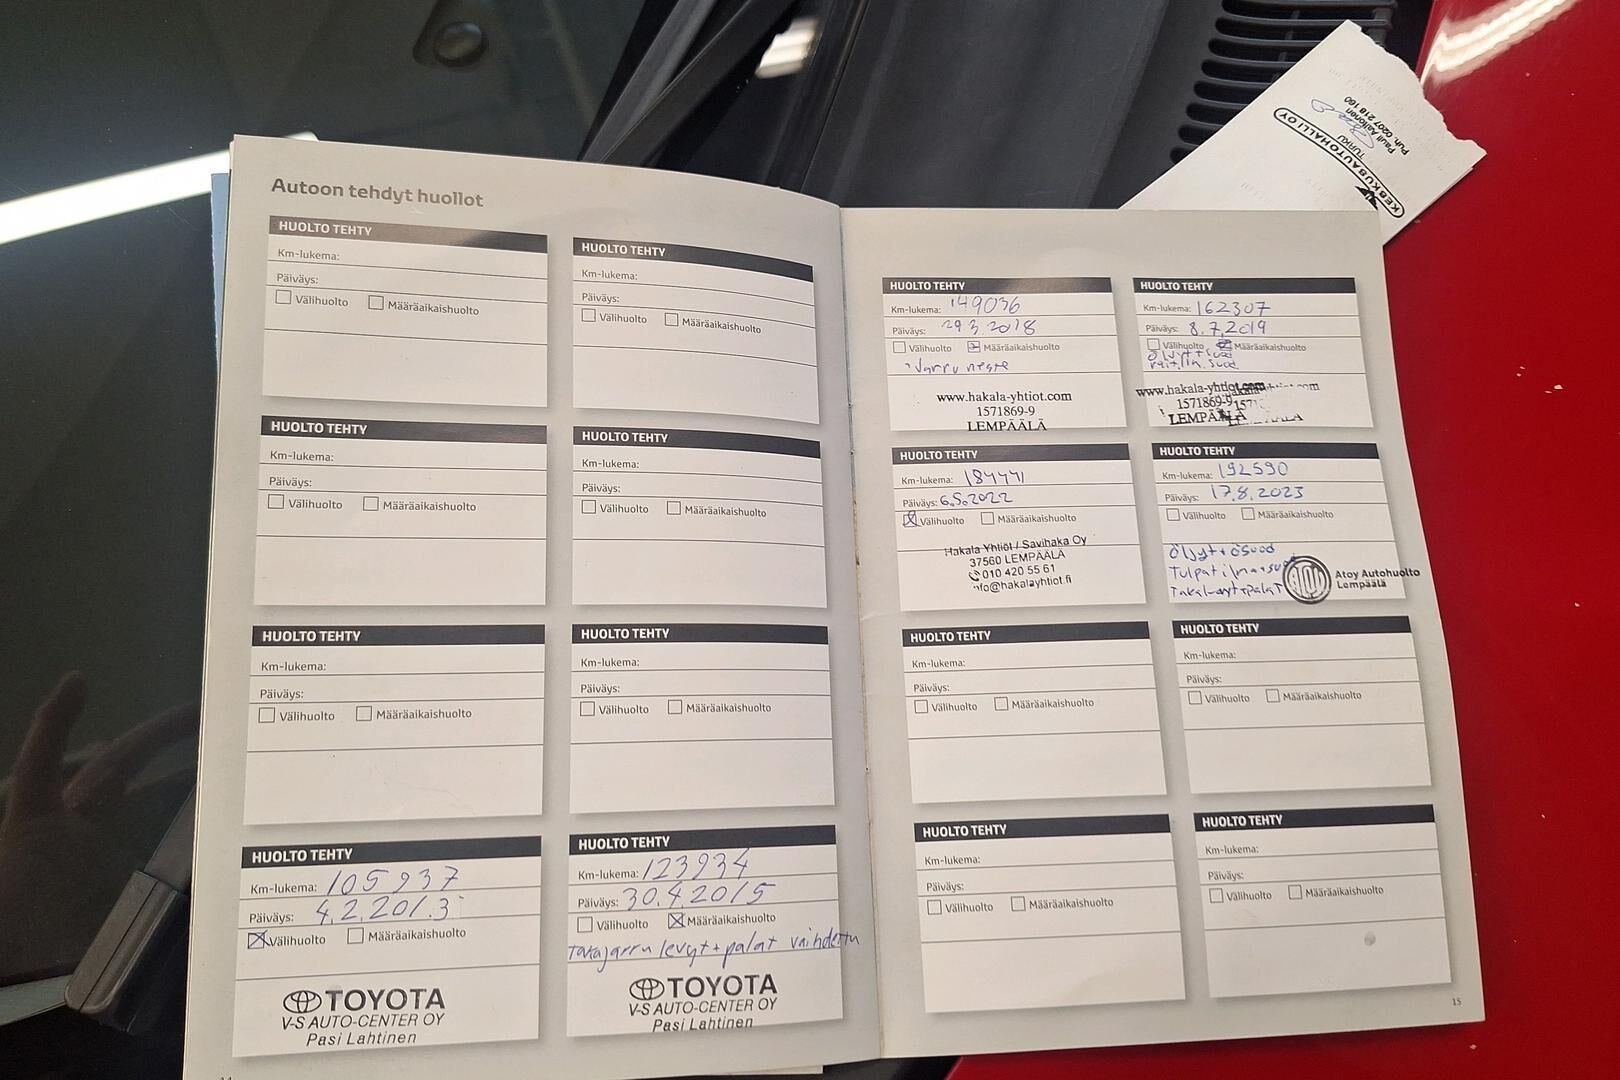 Autoon tehdyt huollot
HUOLTO TEHTY
Km-lukema:
Päiväys:
Välihuolto Määräaikaishuolto
HUOLTO TEHTY
Km-lukema:
Päiväys:
Välihuolto Määräaikaishuolto
HUOLTO TEHTY
Km-lukema:
Päiväys:
Välihuolto Määräaikaishuolto
HUOLTO TEHTY
Km-lukema:
Päiväys:
Välihuolto Määräaikaishuolto
HUOLTO TEHTY
Km-lukema:
Päiväys:
Välihuolto Määräaikaishuolto
HUOLTO TEHTY
Km-lukema:
Päiväys:
Välihuolto Määräaikaishuolto
HUOLTO TEHTY
Km-lukema: 105937
Päiväys: 4.2.2013
Välihuolto Määräaikaishuolto
TOYOTA
V-S AUTO-CENTER OY
Pasi Lahtinen
HUOLTO TEHTY
Km-lukema: 123934
Päiväys: 30.4.2015
Välihuolto Määräaikaishuolto
Takajarru levyt+palat vaihdettu
TOYOTA
V-S AUTO-CENTER OY
Pasi Lahtinen
HUOLTO TEHTY
Km-lukema: 149036
Päiväys: 29.3.2018
Välihuolto Määräaikaishuolto
Jarru neste
www.hakala-yhtiot.com
1571869-9
LEMPÄÄLÄ
HUOLTO TEHTY
Km-lukema: 162307
Päiväys: 8.7.2019
Välihuolto Määräaikaishuolto
Öljyt+suod
rait.ilm.suod
www.hakala-yhtiot.com
1571869-9
LEMPÄÄLÄ
HUOLTO TEHTY
Km-lukema: 184441
Päiväys: 6.5.2022
Välihuolto Määräaikaishuolto
Hakala Yhtiöt / Savihaka Oy
37560 LEMPÄÄLÄ
010 420 55 61
info@hakalayhtiot.fi
HUOLTO TEHTY
Km-lukema: 192590
Päiväys: 17.8.2023
Välihuolto Määräaikaishuolto
Öljyt+ösuod
Tulpat ilmansuod
Atoy Autohuolto
Lempäälä
HUOLTO TEHTY
Km-lukema:
Päiväys:
Välihuolto Määräaikaishuolto
HUOLTO TEHTY
Km-lukema:
Päiväys:
Välihuolto Määräaikaishuolto
HUOLTO TEHTY
Km-lukema:
Päiväys:
Välihuolto Määräaikaishuolto
HUOLTO TEHTY
Km-lukema:
Päiväys:
Välihuolto Määräaikaishuolto
15
KESKUSAUTOHALLI OY
TURKU
Pauli Aaltonen
Puh. 0207 218 160